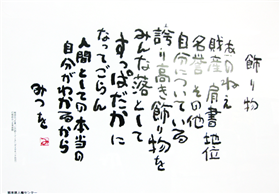 飾り物
あのねえ
財産 肩書 地位
名誉 その他
自分についている
誇り高き 飾り物を
みんな落として
すっぱだかに
なってごらん
人間としての本当の
自分がわかるから
みつを